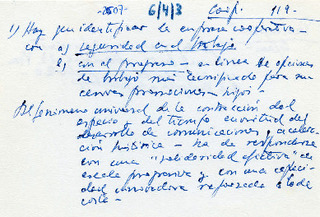 2507 6/4/3 Conf. 119-
1) Hay que identificar la empresa cooperativa-
con a) seguridad en el trabajo
b) con el progreso - en linea de opciones
de trabajo más tecnificado para nu
evas promociones - hijos -
2) El fenómeno universal de la contracción del
espacio y del tiempo en virtud del
desarrollo de comunicaciones, acelera
ción histórica - ha de responderse
con una "solidaridad efectiva" de
escala progresiva y con una capaci
dad innovadora reforzada a toda
costa -